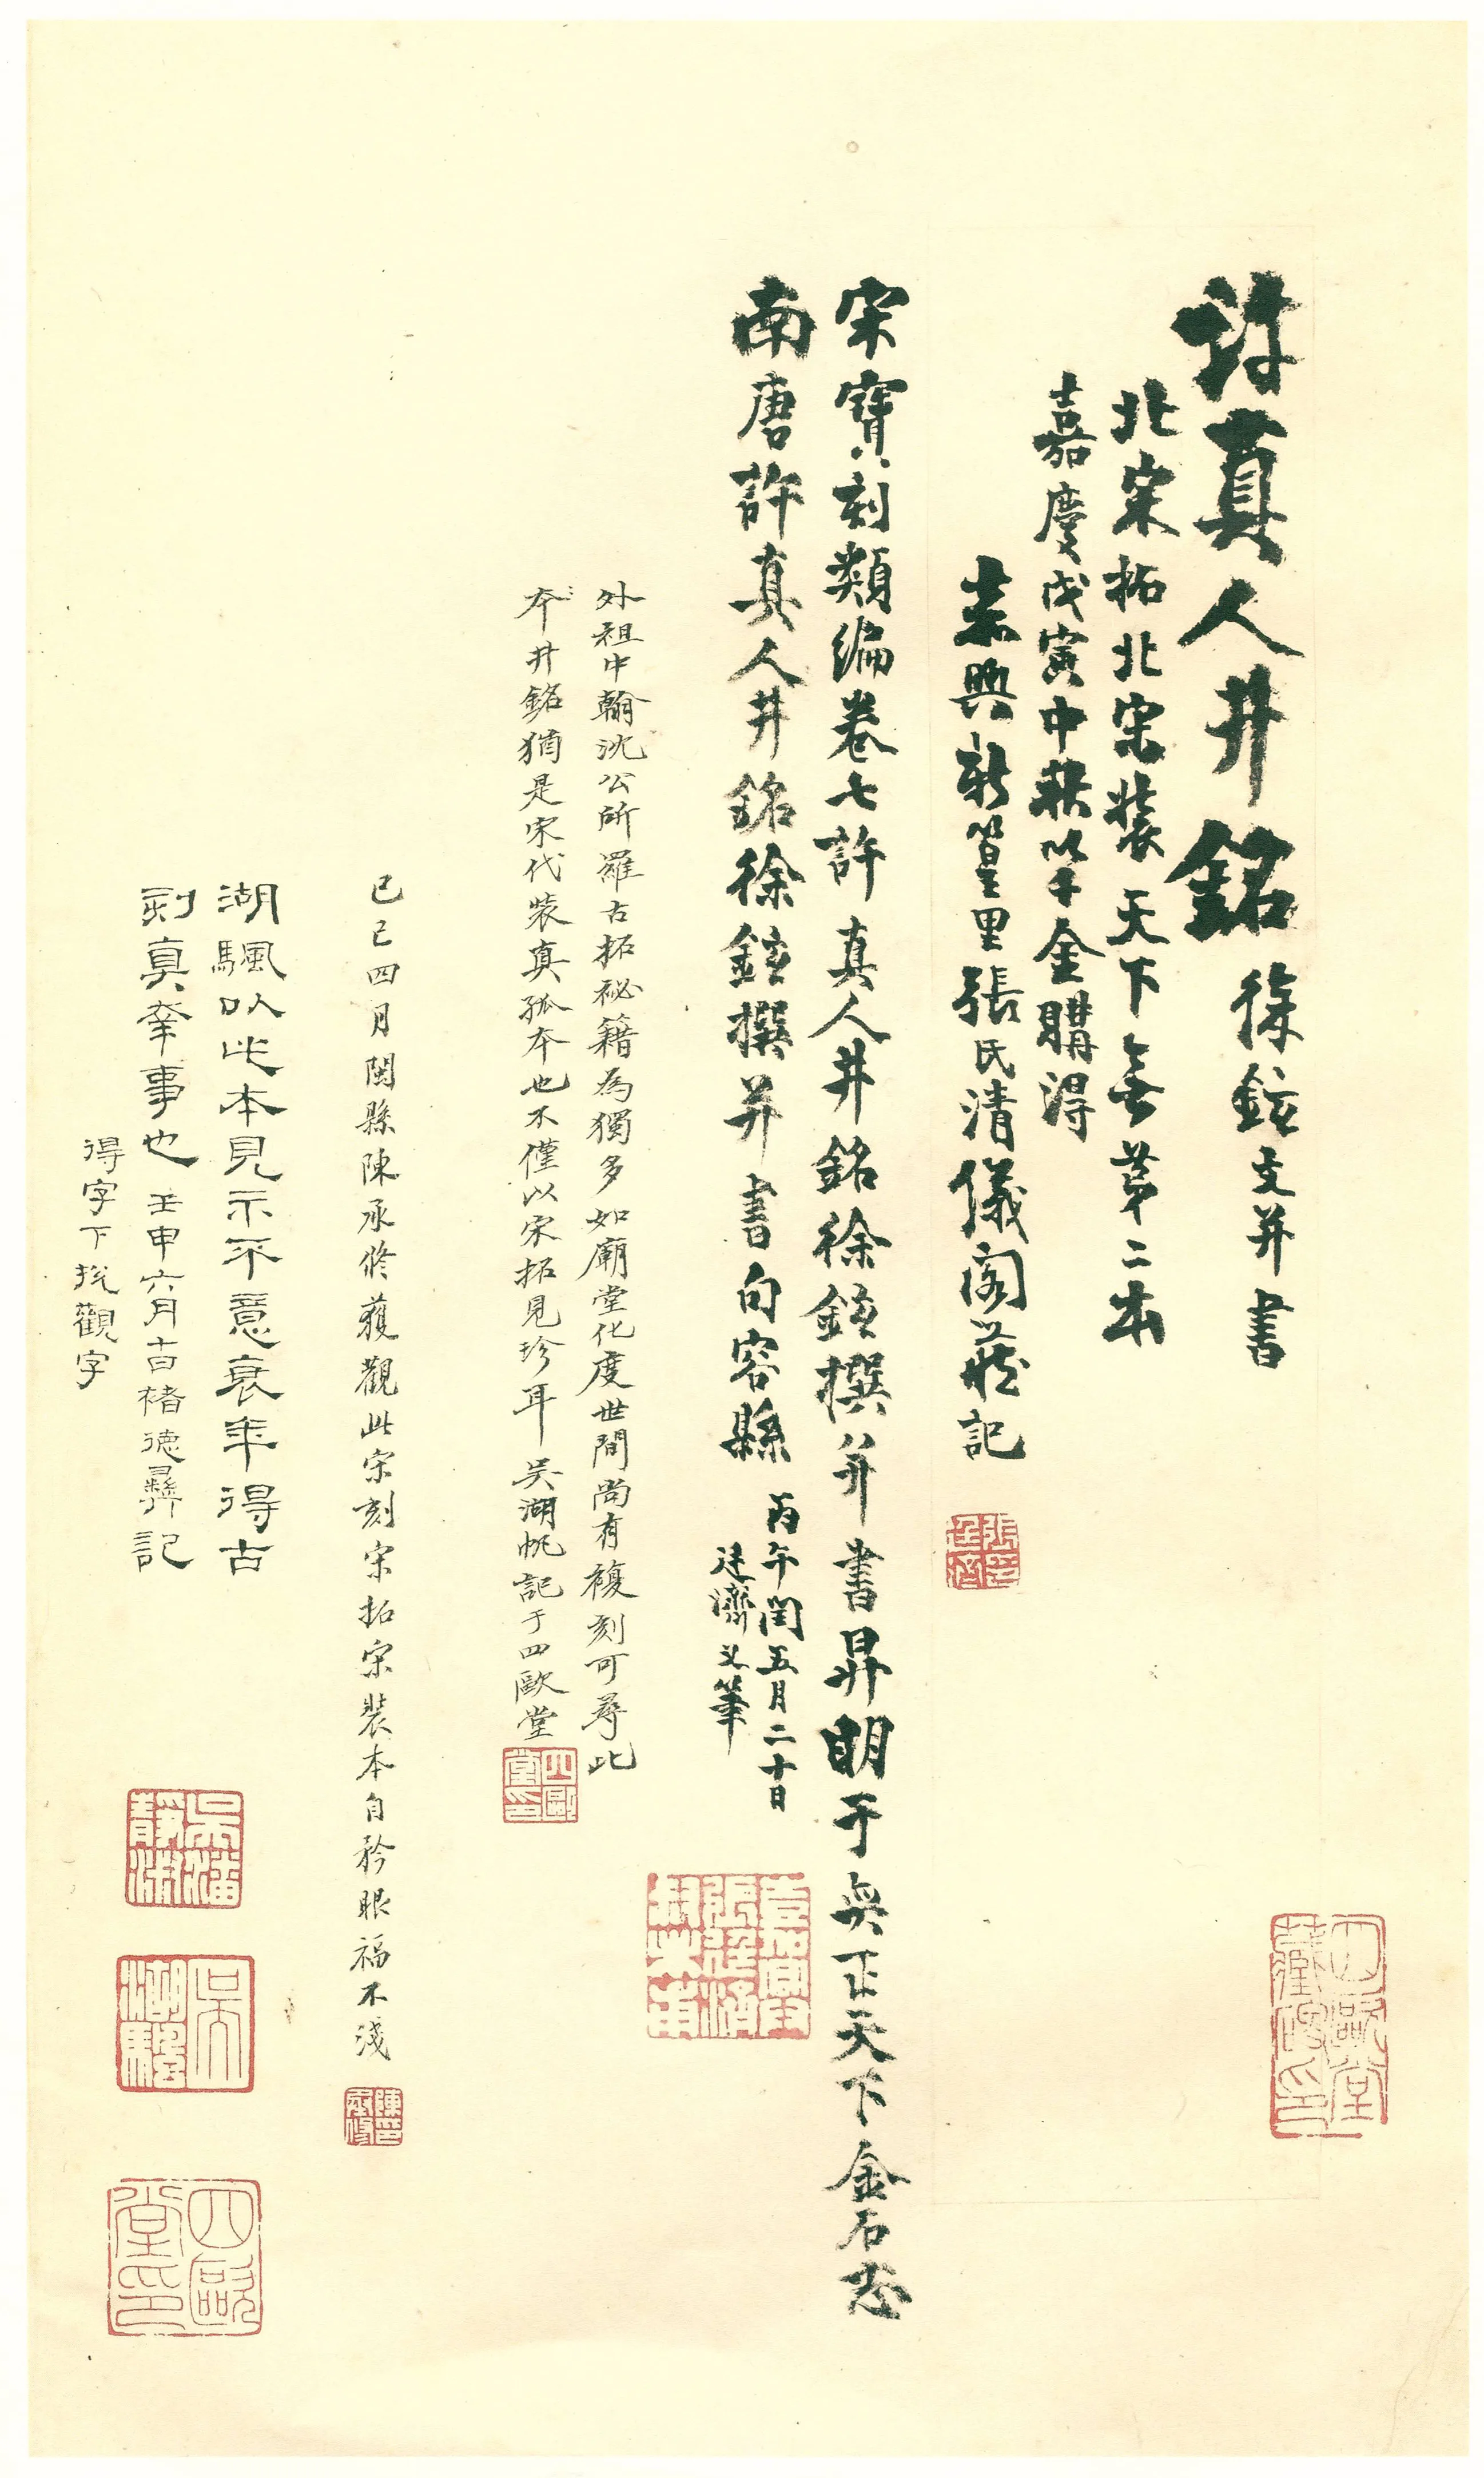 許真人井銘 徐鉉文并書
北宋拓北宋裝天下無第二本
嘉慶戊寅中秋以十金購得
嘉興新篁里張氏清儀閣藏記
宋寶刻類編卷七許真人井銘徐鉉撰并書昇明于奕正天下金石志
南唐許真人井銘徐鉉撰并書句容縣
丙午閏五月二十日
廷濟又筆
外祖中翰沈公所羅古拓祕籍為獨多如廟堂化度世間尚有複刻可尋此
本井銘猶是宋代裝真孤本也不僅以宋拓見珍耳 吳湖帆記于四歐堂
己巳四月閩縣陳承修獲觀此宋刻宋拓宋裝本自矜眼福不淺
湖颿以此本見示不意衰年得古
刻真幸事也 壬申六月十一日褚德彝記
得字下挩觀字
張廷濟印
嘉興張廷濟叔未甫
四歐堂印
陳承修印
吳潘靜淑
吳湖颿
四歐堂印
四歐堂藏碑印